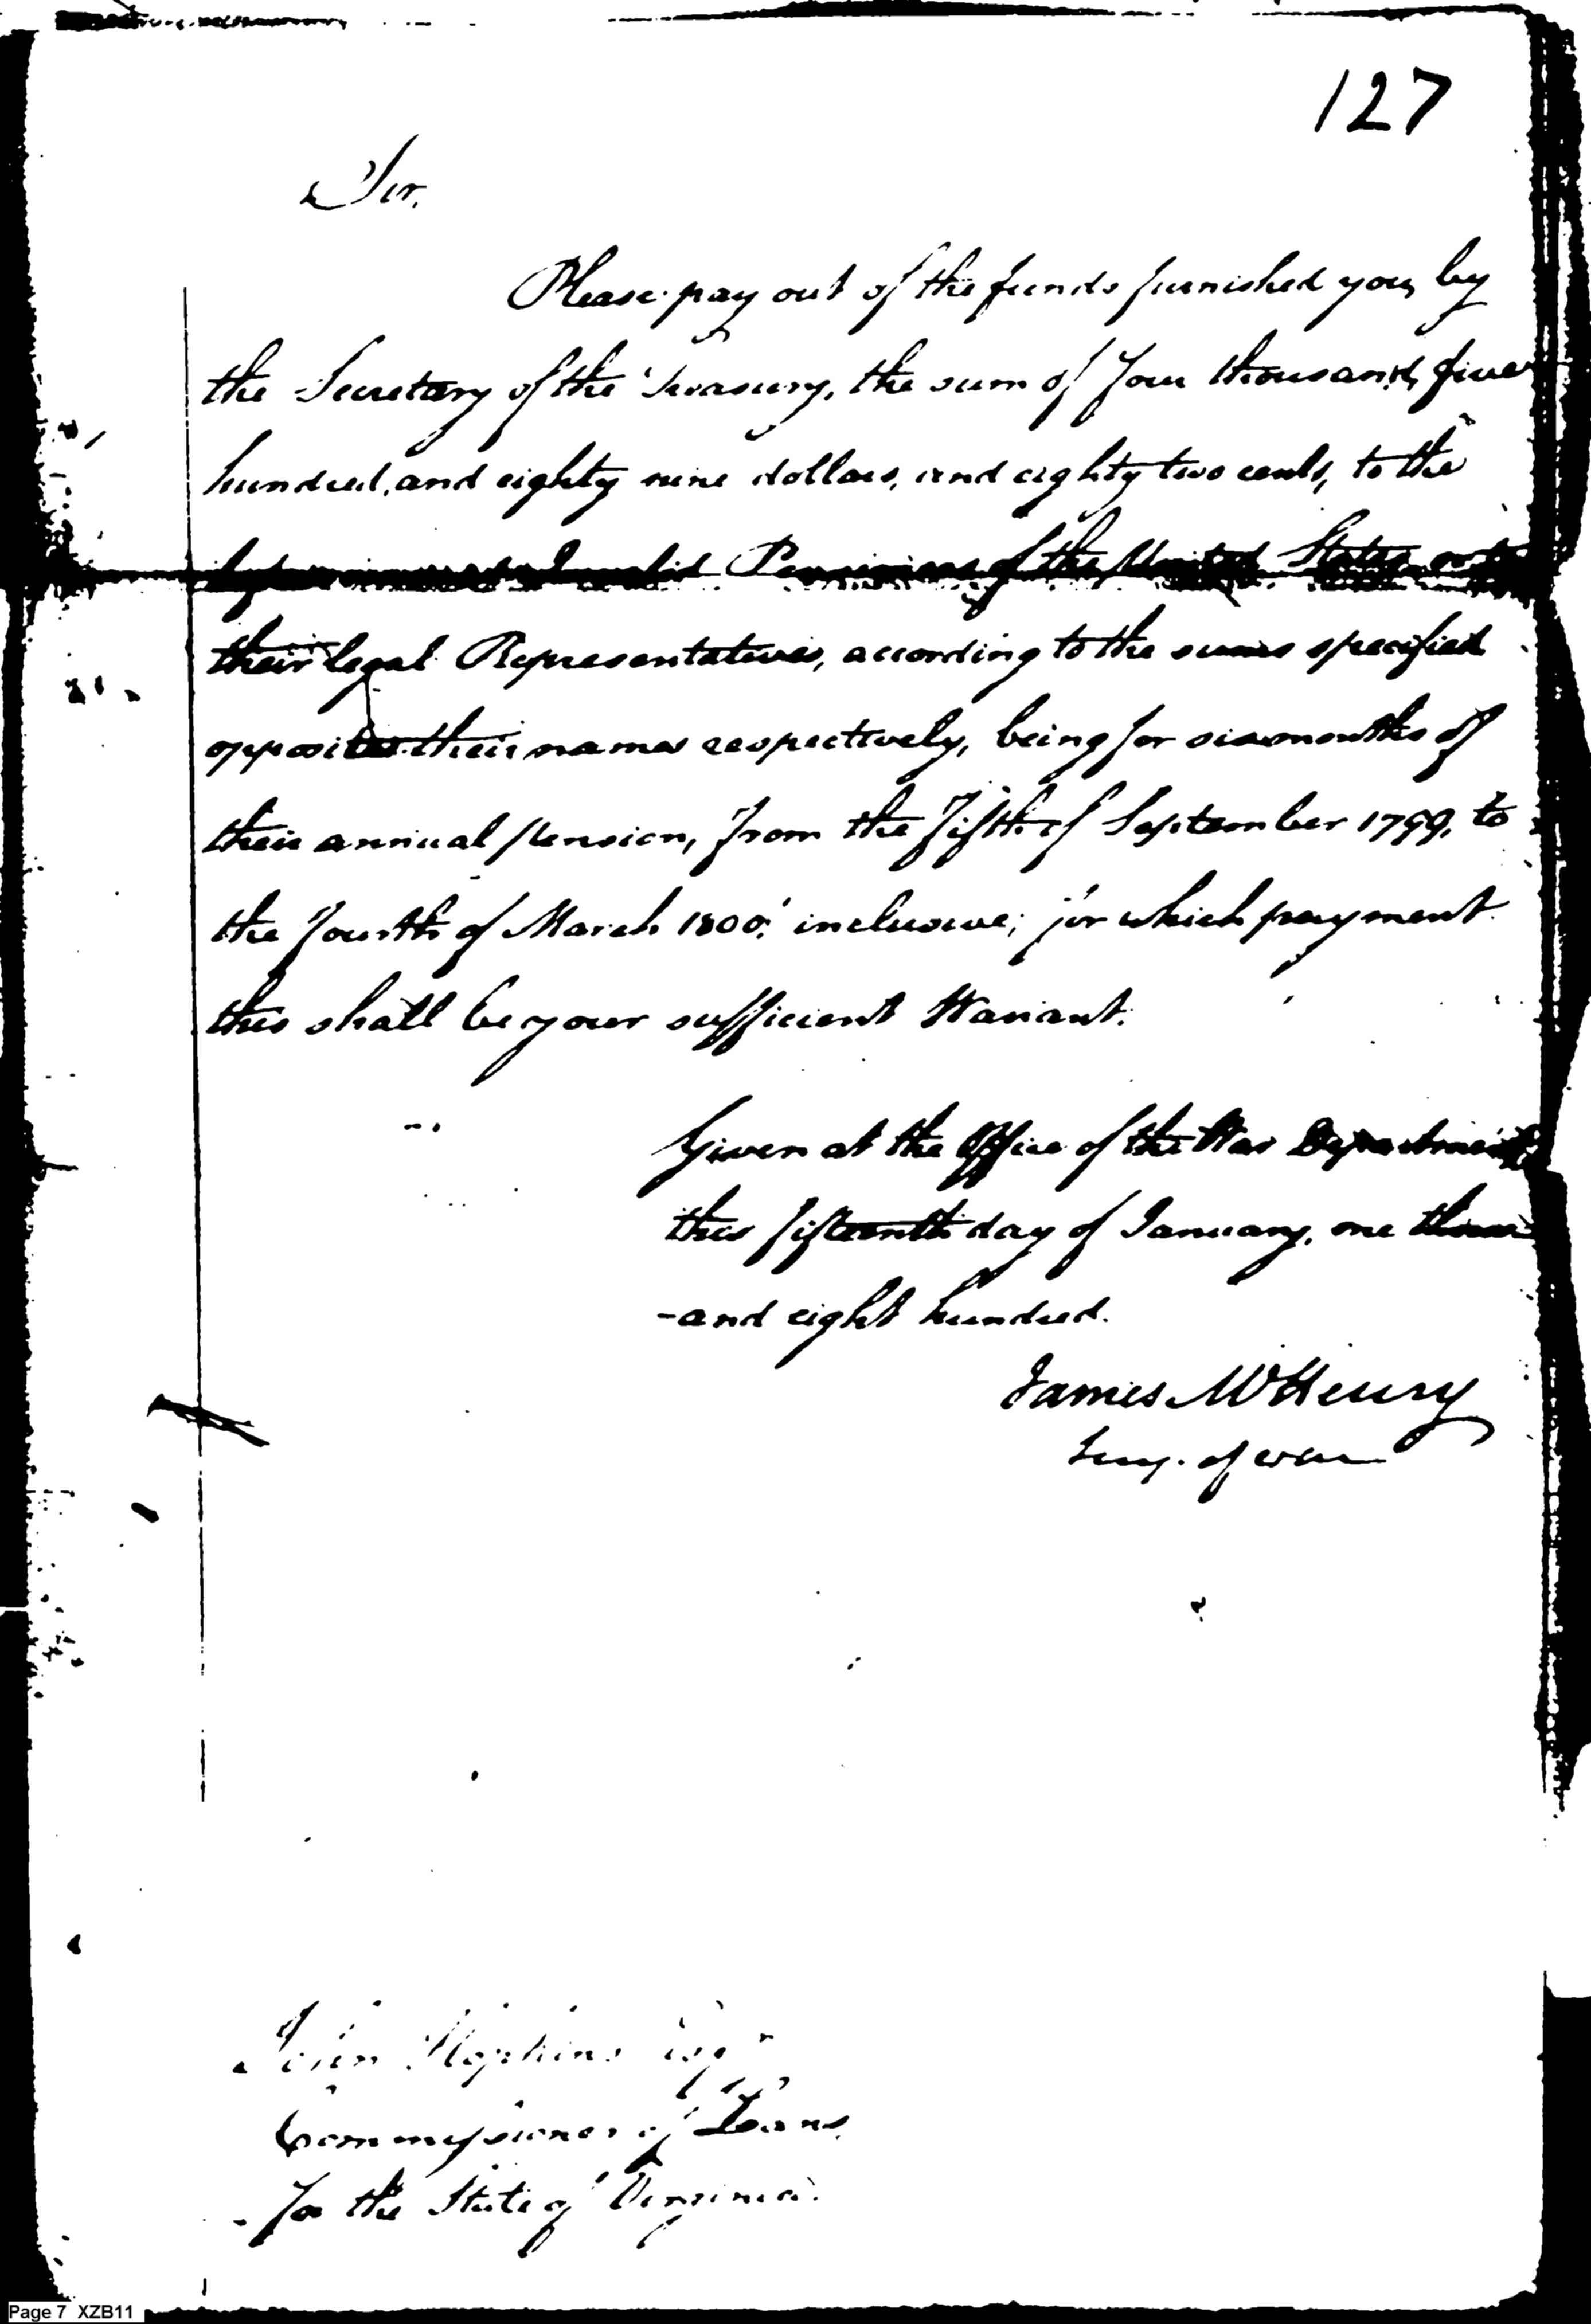 127
Sir,
Please pay out of the funds furnished you, by
the Secretary of the Treasury, the sum of Four thousand, five
hundred, and eighty nine dollars, and eighty two cents, to the
Invalid Pensioners of the United States, or to
their legal Representatives, according to the sums specified
opposite their names respectively, being for six months of
their annual pension, from the Fifth of September 1799, to
the Fourth of March 1800, inclusive; for which payment
this shall be your sufficient Warrant.
Given at the Office of the War Department
this fifteenth day of January, one thous
-and eight hundred.
James McHenry
Secy. of War
John Hopkins Esqr
Commissioner of Loans
For the State of Virginia.
Page 7 XZB11